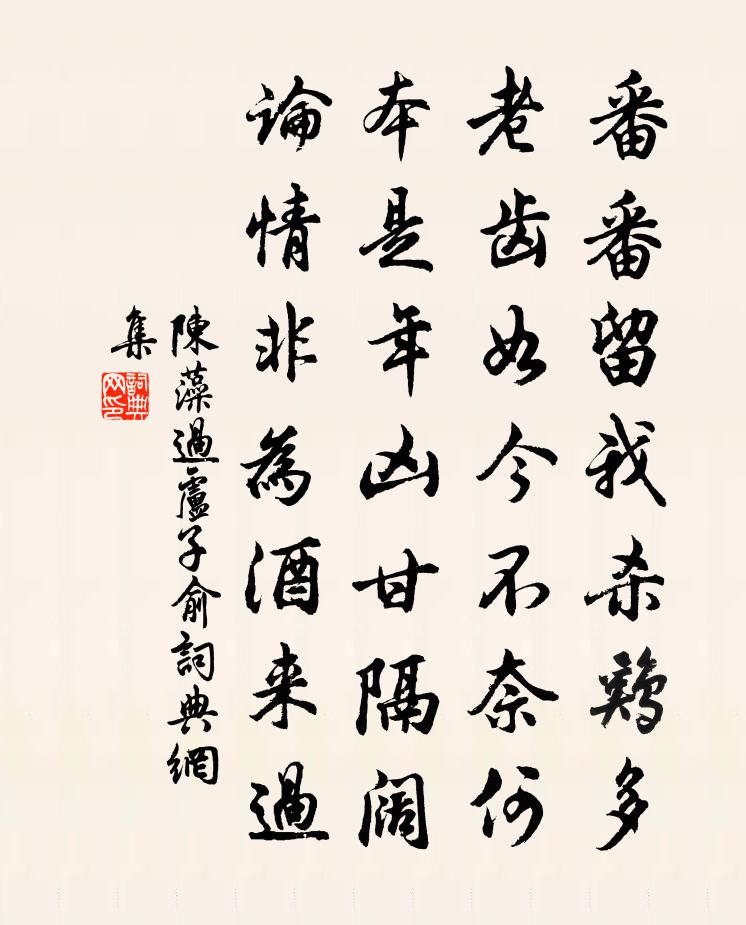 番番留我杀鷄多
老齿如今不奈何
本是年凶甘隔阔
論情非為酒来過
陳藻過盧子俞詞典網
集
詞典
网印